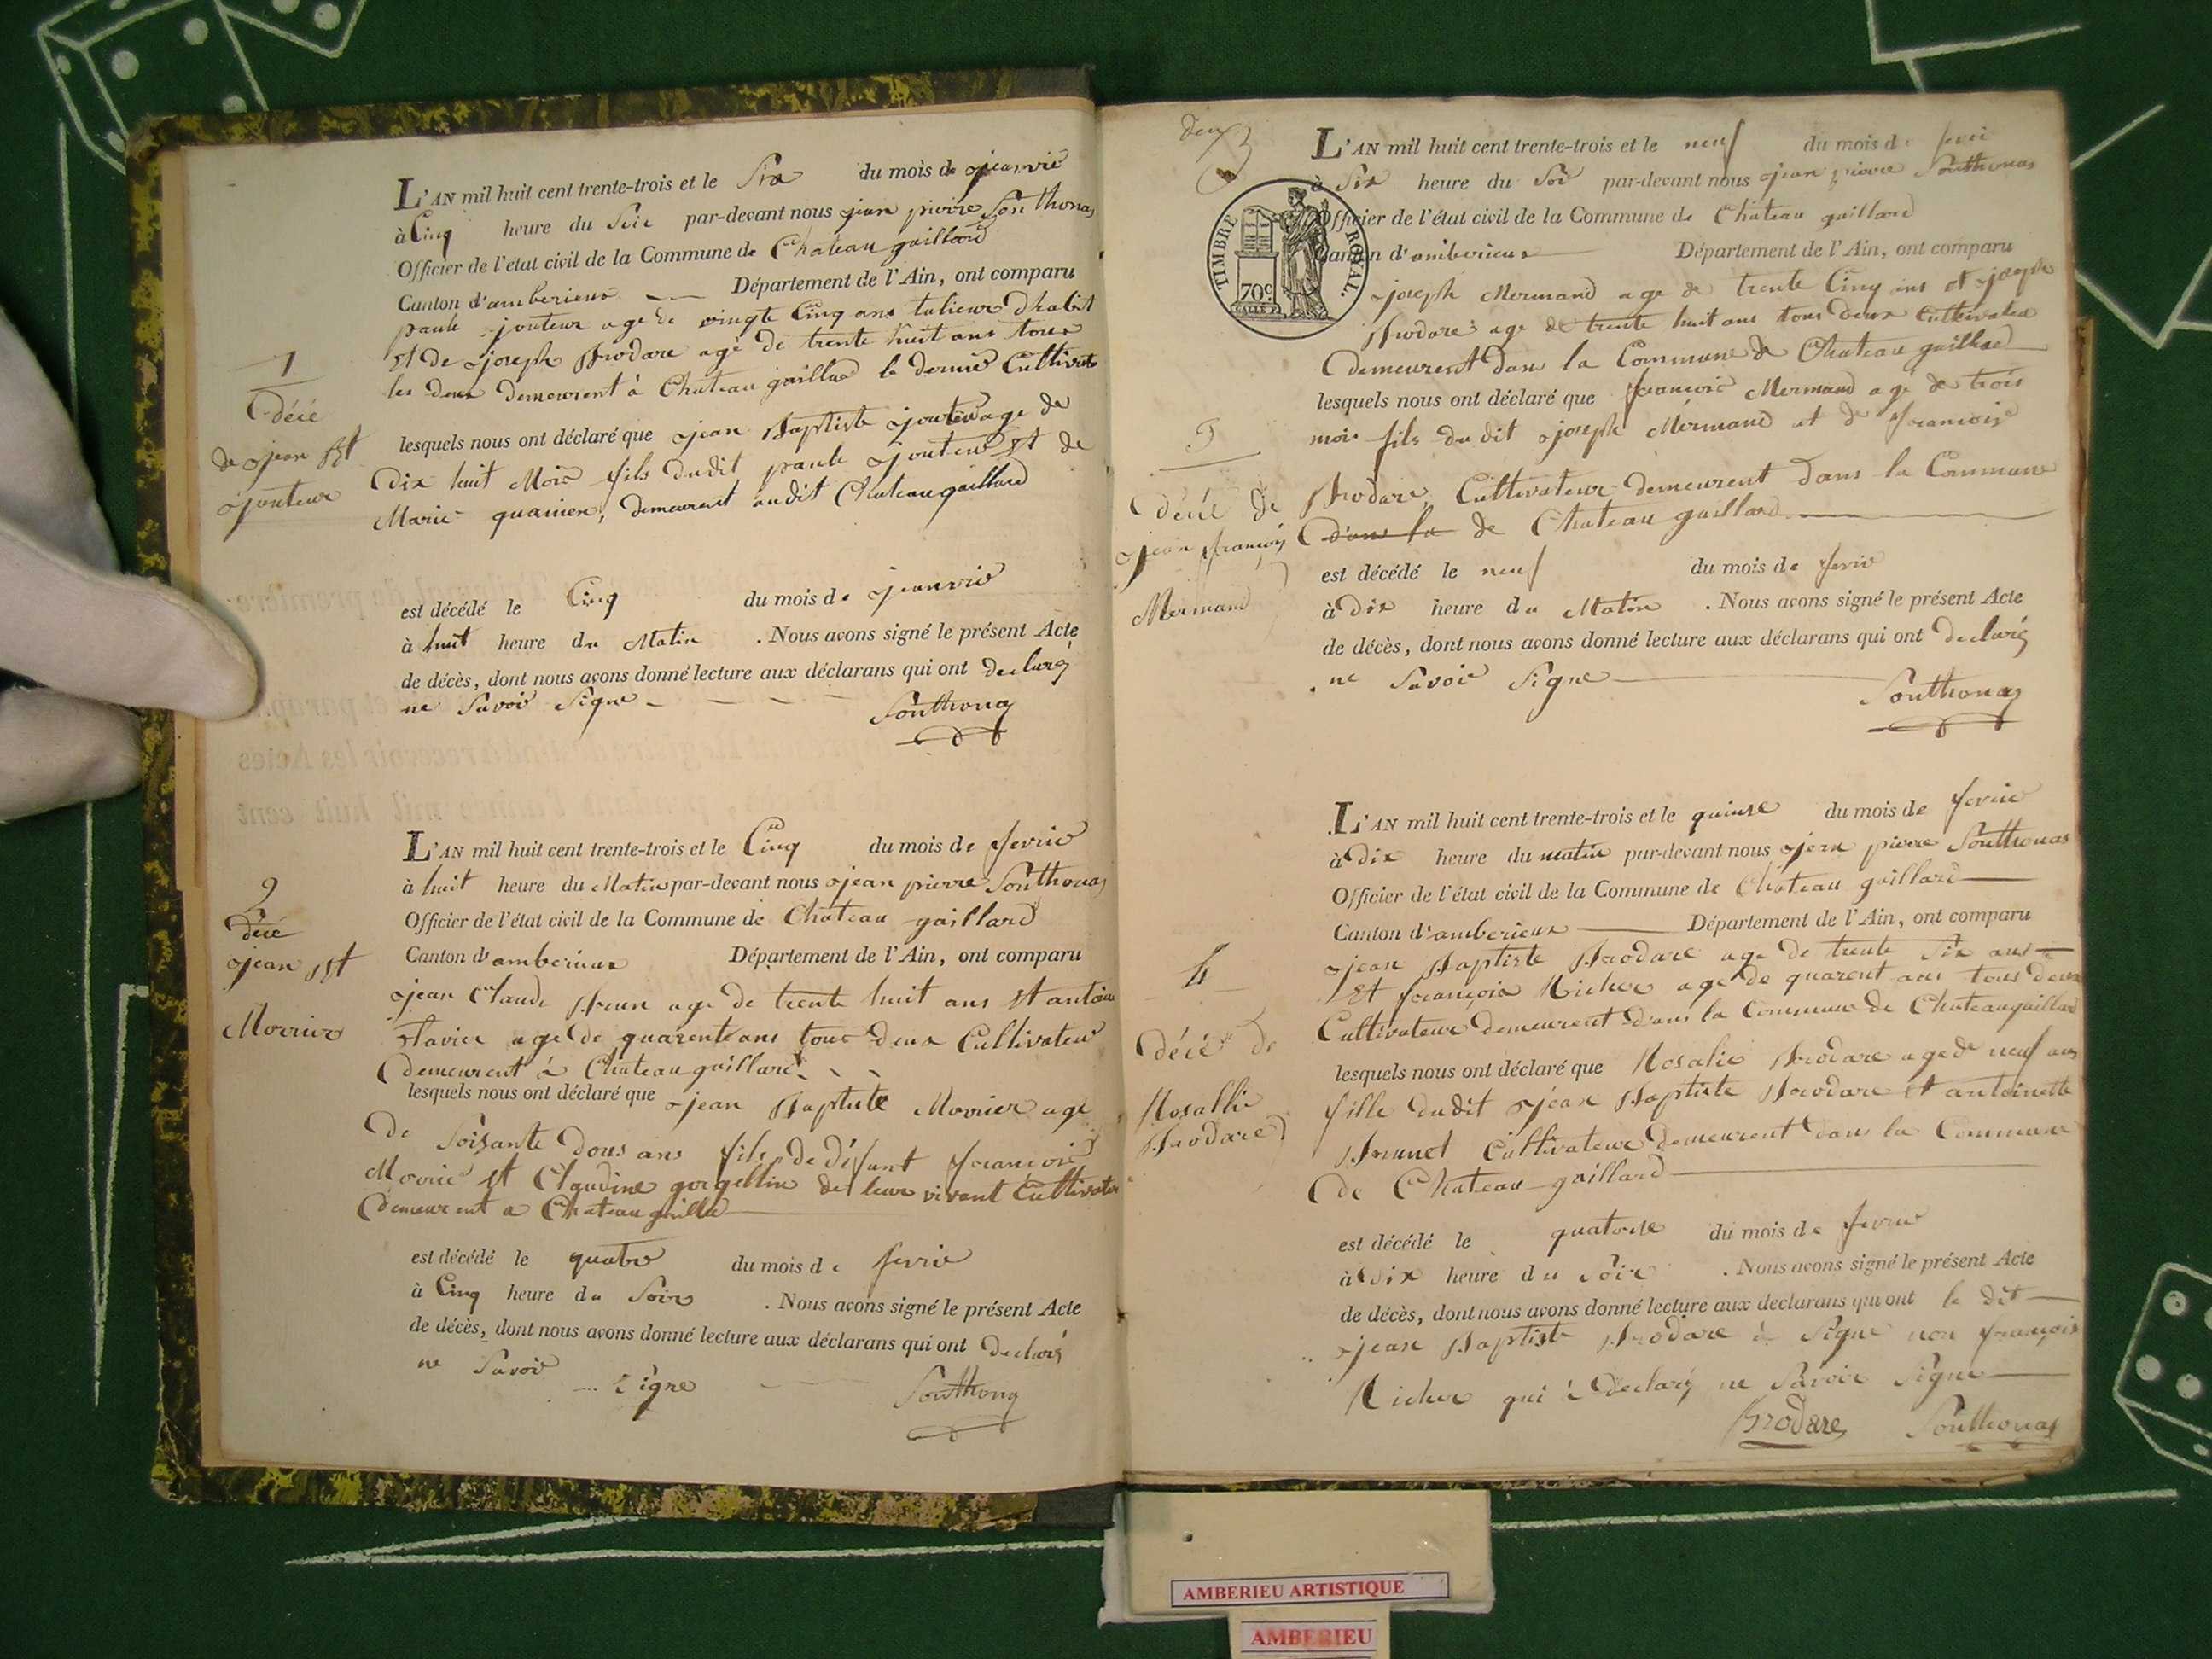 L'AN mil huit cent trente-trois et le Six du mois de jeanvié
à Cinq heure du Soir par-devant nous jean pierre Southonas
Officier de l'état civil de la Commune de Chateau gaillard
Canton d'amberieux Département de l'Ain, ont comparu
paule jouteur age de vingte Cinq ans talieur dhabit
Et de joseph Brodare agé de trente huit ans tous
les deux demeurent à Chateau gaillard le dernié Cultivat
1
décé
de jean Bt
jouteur
lesquels nous ont déclaré que jean Baptiste jouteur age de
Dix huit Mois fils dudit paule jouteur Et de
Marie demeurent audit Chateaugaillard
est décédé le Cinq du mois de jeanvié
à huit heure du Matin . Nous avons signé le présent Acte
de décès, dont nous avons donné lecture aux déclarans qui ont declaré
ne Savoir Signe
Southonas
L'AN mil huit cent trente-trois et le Cinq du mois de fevrié
à huit heure du Matin par-devant nous jean pierre Southonas
Officier de l'état civil de la Commune de Chateau gaillard
Canton d'amberieux Département de l'Ain, ont comparu
jean Claude Brun age de trente huit ans Et antoine
age de quarente ans tous deux Cultivateur
demeurent à Chateau gaillard
2
décé
jean Bt
Morrier
lesquels nous ont déclaré que jean Baptiste Morrier agé
De Soisante Dous ans fils de défunt françois
Morrié Et Claudine de leur vivant Cultivater
demeurent a Chateau gailla
est décédé le quatre du mois de fevrié
à Cinq heure du Soire . Nous avons signé le présent Acte
de décès, dont nous avons donné lecture aux déclarans qui ont declaré
ne Savoir Signe
Southonas
deux
L'AN mil huit cent trente-trois et le neuf du mois de fevrié
à Six heure du Soir par-devant nous jean pierre Southonas
Officier de l'état civil de la Commune de Chateau gaillard
Canton d'amberieux Département de l'Ain, ont comparu
TIMBRE ROYAL.
70c
joseph Mermand age de trente Cinq ans et joseph
Brodare age de trente huit ans tous deux Cultivateur
demeurent dans la Commune de Chateau gaillard
lesquels nous ont déclaré que françois Mermand agé de trois
mois fils du dit joseph Mermand et de françoise
Brodare, Cultivateur demeurent dans la Commune
dans la de Chateau gaillard
3
décé de
jean françois
Mermand
est décédé le neuf du mois de fevrié
à Dix heure du Matin . Nous avons signé le présent Acte
de décès, dont nous avons donné lecture aux déclarans qui ont declaré
ne Savoir Signe
Southonas
L'AN mil huit cent trente-trois et le quinse du mois de fevrié
à Dix heure du matin par-devant nous jean pierre Southonas
Officier de l'état civil de la Commune de Chateau gaillard
Canton d'amberieux Département de l'Ain, ont comparu
jean Baptiste Brodare age de trente Six ans
Et françois Richer age de quarent ans tous deux
Cultivateur demeurent dans la Commune de Chateaugaillard
4
décé de
Rosallie
Brodare
lesquels nous ont déclaré que Rosalie Brodare age de neuf ans
fille dudit jean Baptiste Brodare Et antoinette
Brunet Cultivateur demeurent dans la Commune
de Chateau gaillard
est décédé le quatorse du mois de fevrié
à Six heure du Soire . Nous avons signé le présent Acte
de décès, dont nous avons donné lecture aux déclarans qui ont le dit
jean Baptiste Brodare à Signe non françois
Richer qui à declaré ne Savoir Signe
Brodare Southonas
AMBERIEU ARTISTIQUE
AMBERIEU